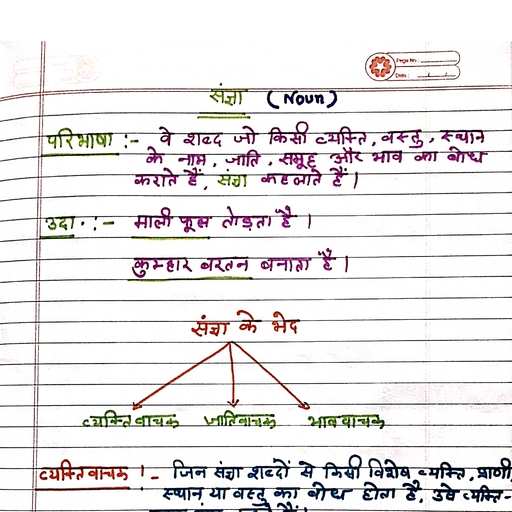 Page No.:
Date:
संज्ञा (Noun)
परिभाषा :- वे शब्द जो किसी व्यक्ति, वस्तु, स्थान
के नाम, जाति, समूह और भाव का बोध
कराते हैं, संज्ञा कहलाते हैं।
उदा.:- माली फूल तोड़ता है।
कुम्हार बरतन बनाता है।
संज्ञा के भेद
व्यक्तिवाचक जातिवाचक भाववाचक
व्यक्तिवाचक :- जिन संज्ञा शब्दों से किसी विशेष व्यक्ति, प्राणी,
स्थान या वस्तु का बोध होता है, उसे व्यक्ति-